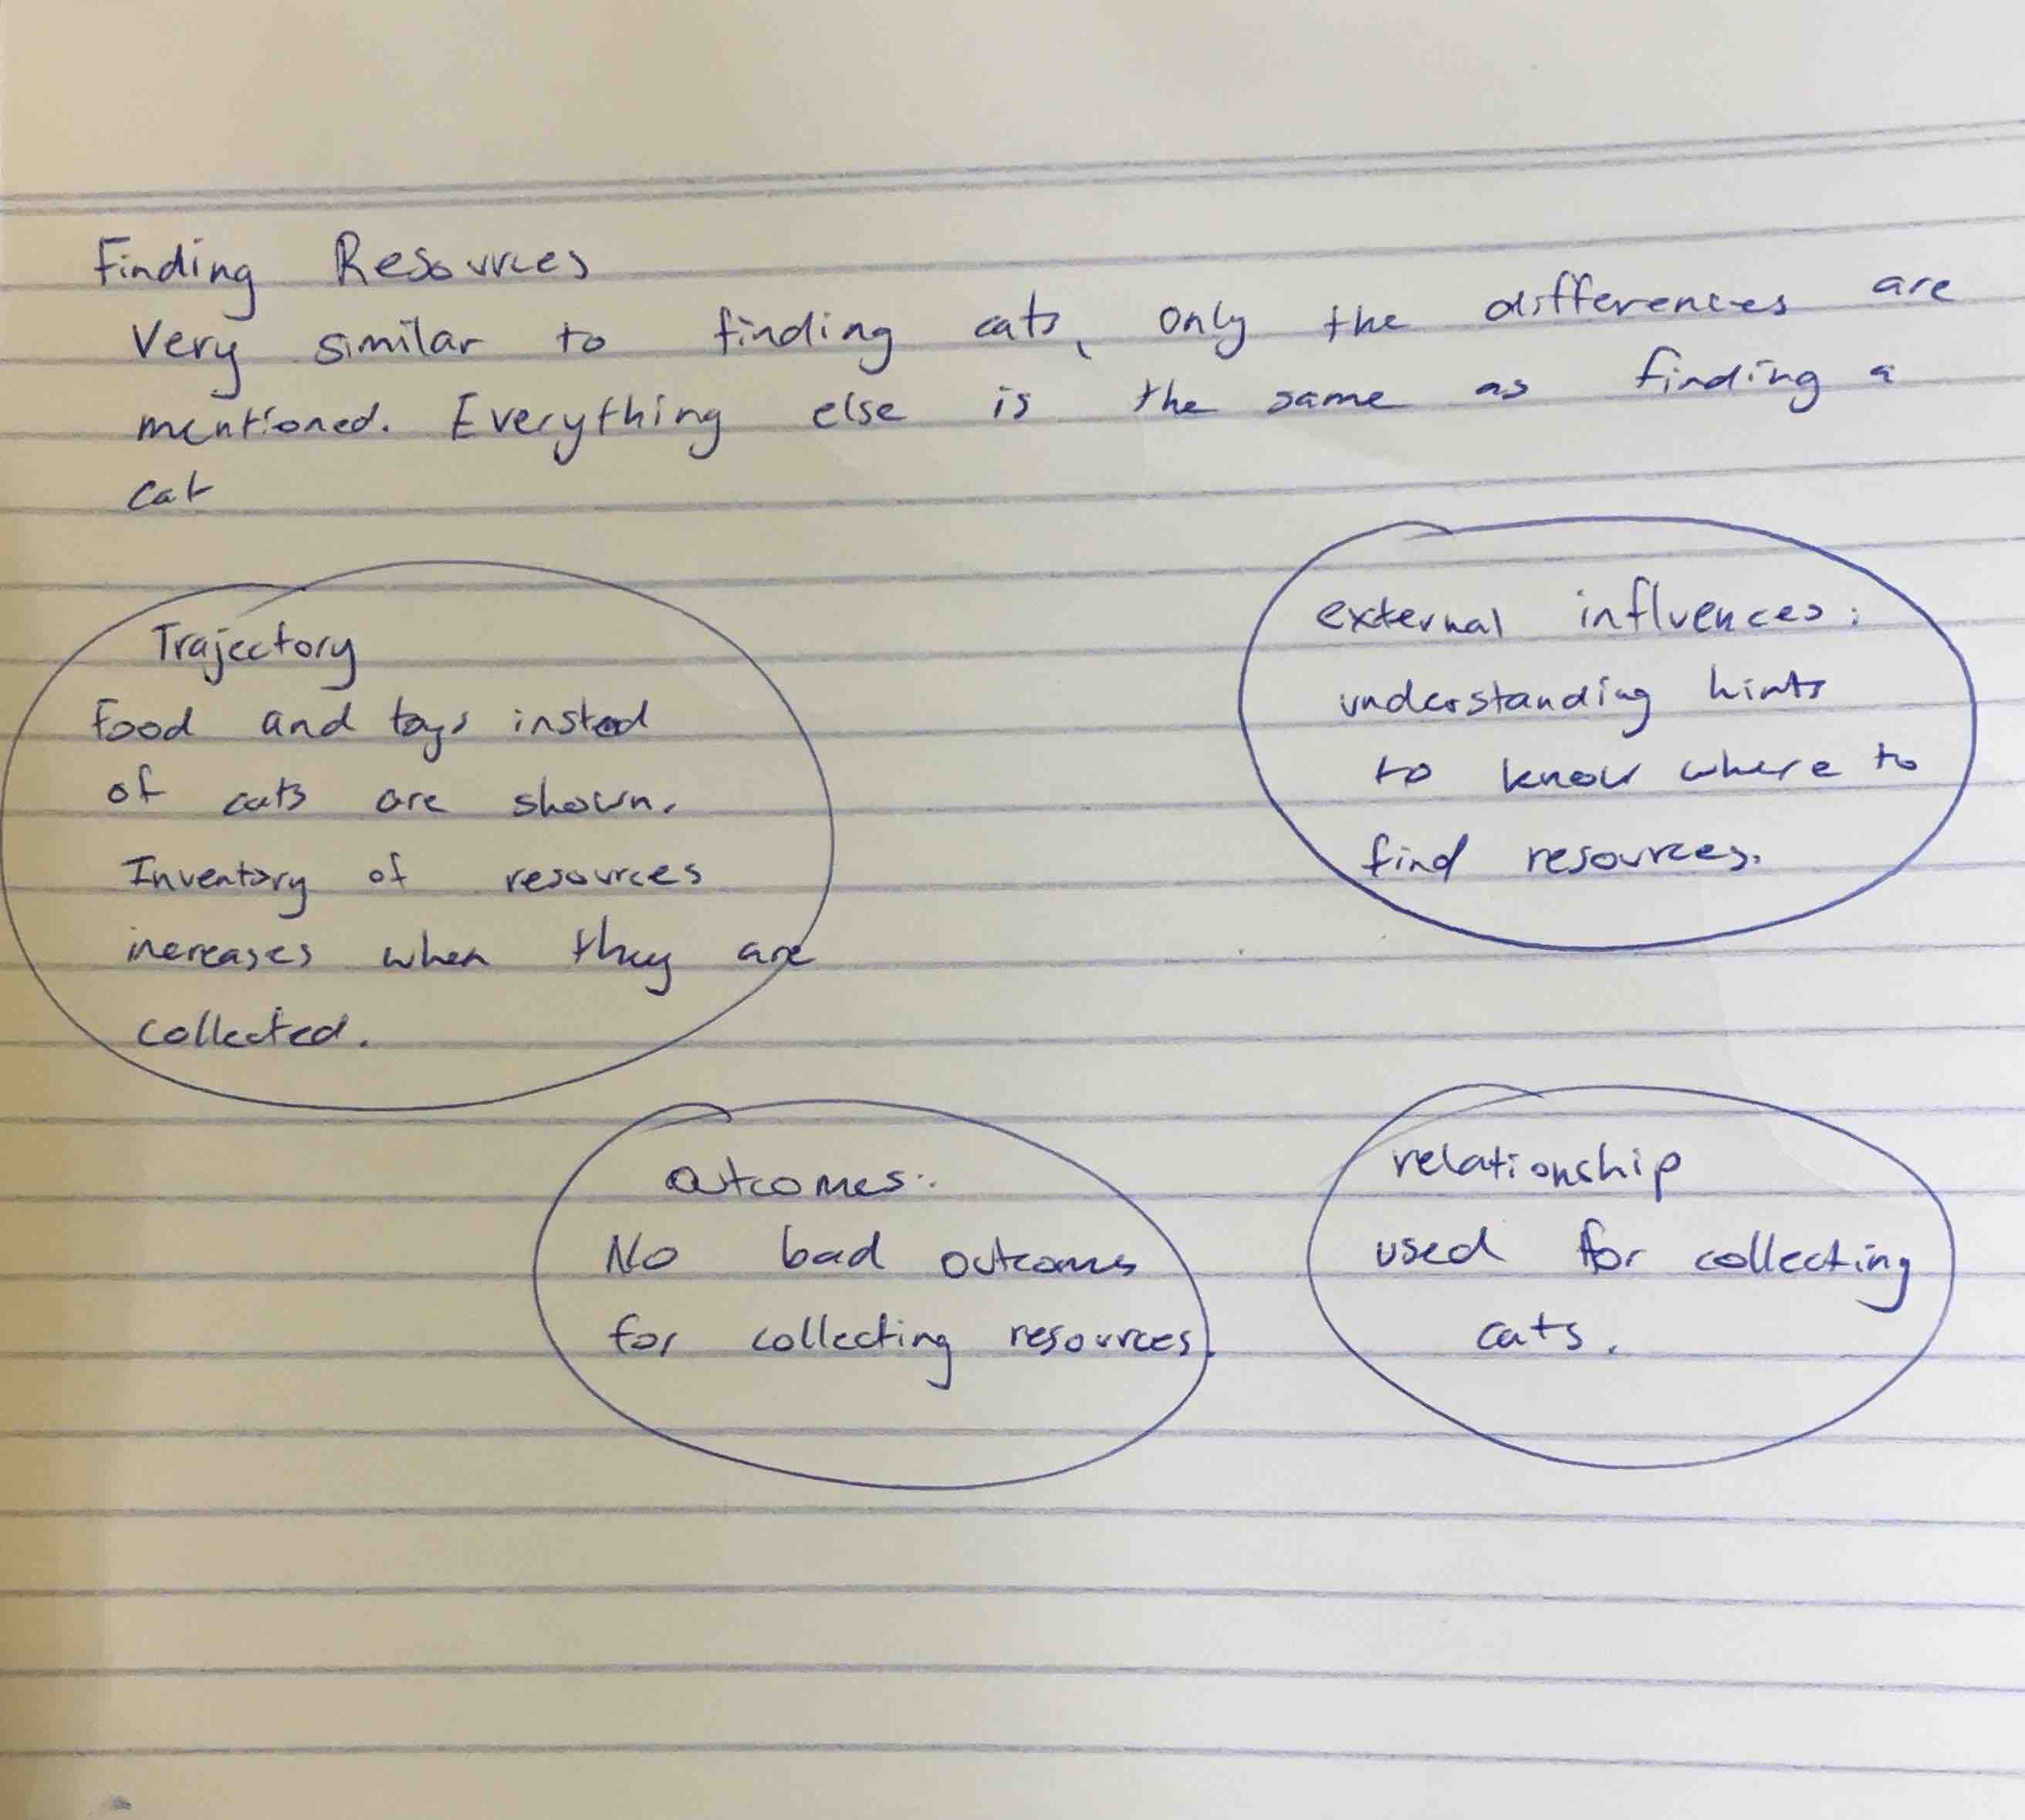 Finding Resources
Very similar to finding cats, only the differences are
mentioned. Everything else is the same as finding a
cat
Trajectory
Food and toys instead
of cats are shown.
Inventory of resources
increases when they are
collected.
external influences:
understanding hints
to know where to
find resources.
outcomes:
No bad outcomes
for collecting resources.
relationship
used for collecting
cats.